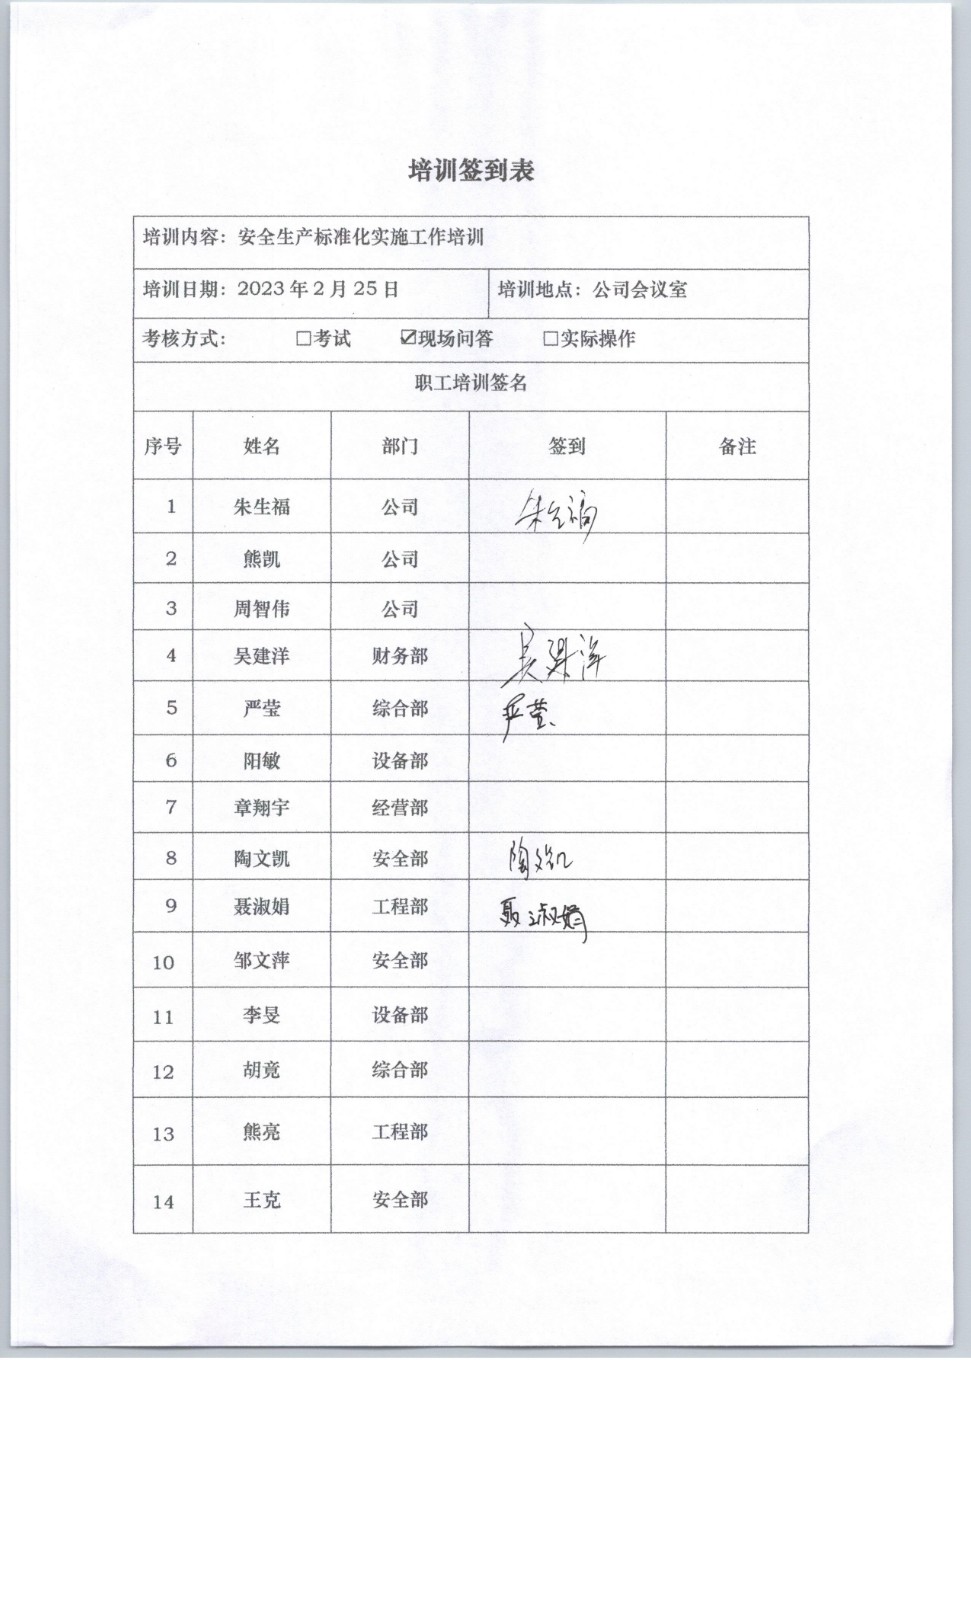 培训签到表
培训内容：安全生产标准化实施工作培训
培训日期：2023年2月25日 培训地点：公司会议室
考核方式： □考试 ☑现场问答 □实际操作
职工培训签名
序号 姓名 部门 签到 备注
1 朱生福 公司 朱生福
2 熊凯 公司
3 周智伟 公司
4 吴建洋 财务部 吴建洋
5 严莹 综合部 严莹
6 阳敏 设备部
7 章翔宇 经营部
8 陶文凯 安全部 陶文凯
9 聂淑娟 工程部 聂淑娟
10 邹文萍 安全部
11 李旻 设备部
12 胡竟 综合部
13 熊亮 工程部
14 王克 安全部